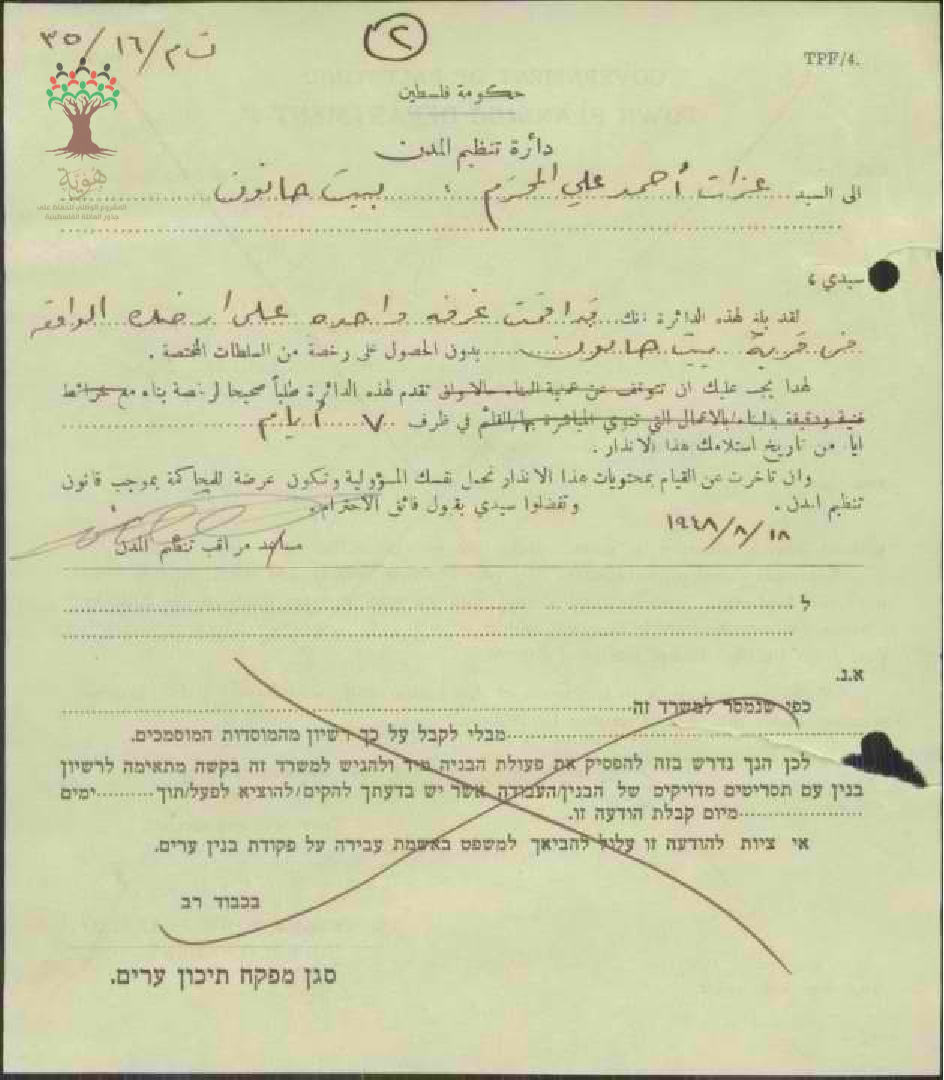 ت م/١٦/٣٥
٢
TPF/4.
حكومة فلسطين
دائرة تنظيم المدن
هوية
المشروع الوطني للحفاظ على
جذور العائلة الفلسطينية
الى السيد عزات أحمد علي المحرم ؛ بيت حانون
سيدي ،
لقد بلغ لهذه الدائرة انك قد اقمت غرفه واحده على ارضك الواقعه
في قرية بيت حانون بدون الحصول على رخصة من السلطات المختصة .
لهذا يجب عليك ان تتوقف عن عملية البناء حالا وان تقدم لهذه الدائرة طلباً صحيحا لرخصة بناء مع خرائط
فنية ودقيقة بالبناء/بالاعمال التي تنوي المباشرة بها/القائم في ظرف ٧ أيام
ايام من تاريخ استلامك هذا الانذار .
وان تاخرت عن القيام بمحتويات هذا الانذار تحمل نفسك المسؤولية وتكون عرضة للمحاكمة بموجب قانون
تنظيم المدن . وتفضلوا سيدي بقبول فائق الاحترام .
١٨/٨/١٩٤٨
مساعد مراقب تنظيم المدن
ל
א.נ.
כפי שנמסר למשרד זה
מבלי לקבל על כך רשיון מהמוסדות המוסמכים.
לכן הנך נדרש בזה להפסיק את פעולת הבניה מיד ולהגיש למשרד זה בקשה מתאימה לרשיון
בנין עם תסריטים מדויקים של הבנין/העבודה אשר יש בדעתך להקים/להוציא לפעל/תוך ימים
מיום קבלת הודעה זו.
אי ציות להודעה זו עלול להביאך למשפט באשמת עבירה על פקודת בנין ערים.
בכבוד רב
סגן מפקח תיכון ערים.